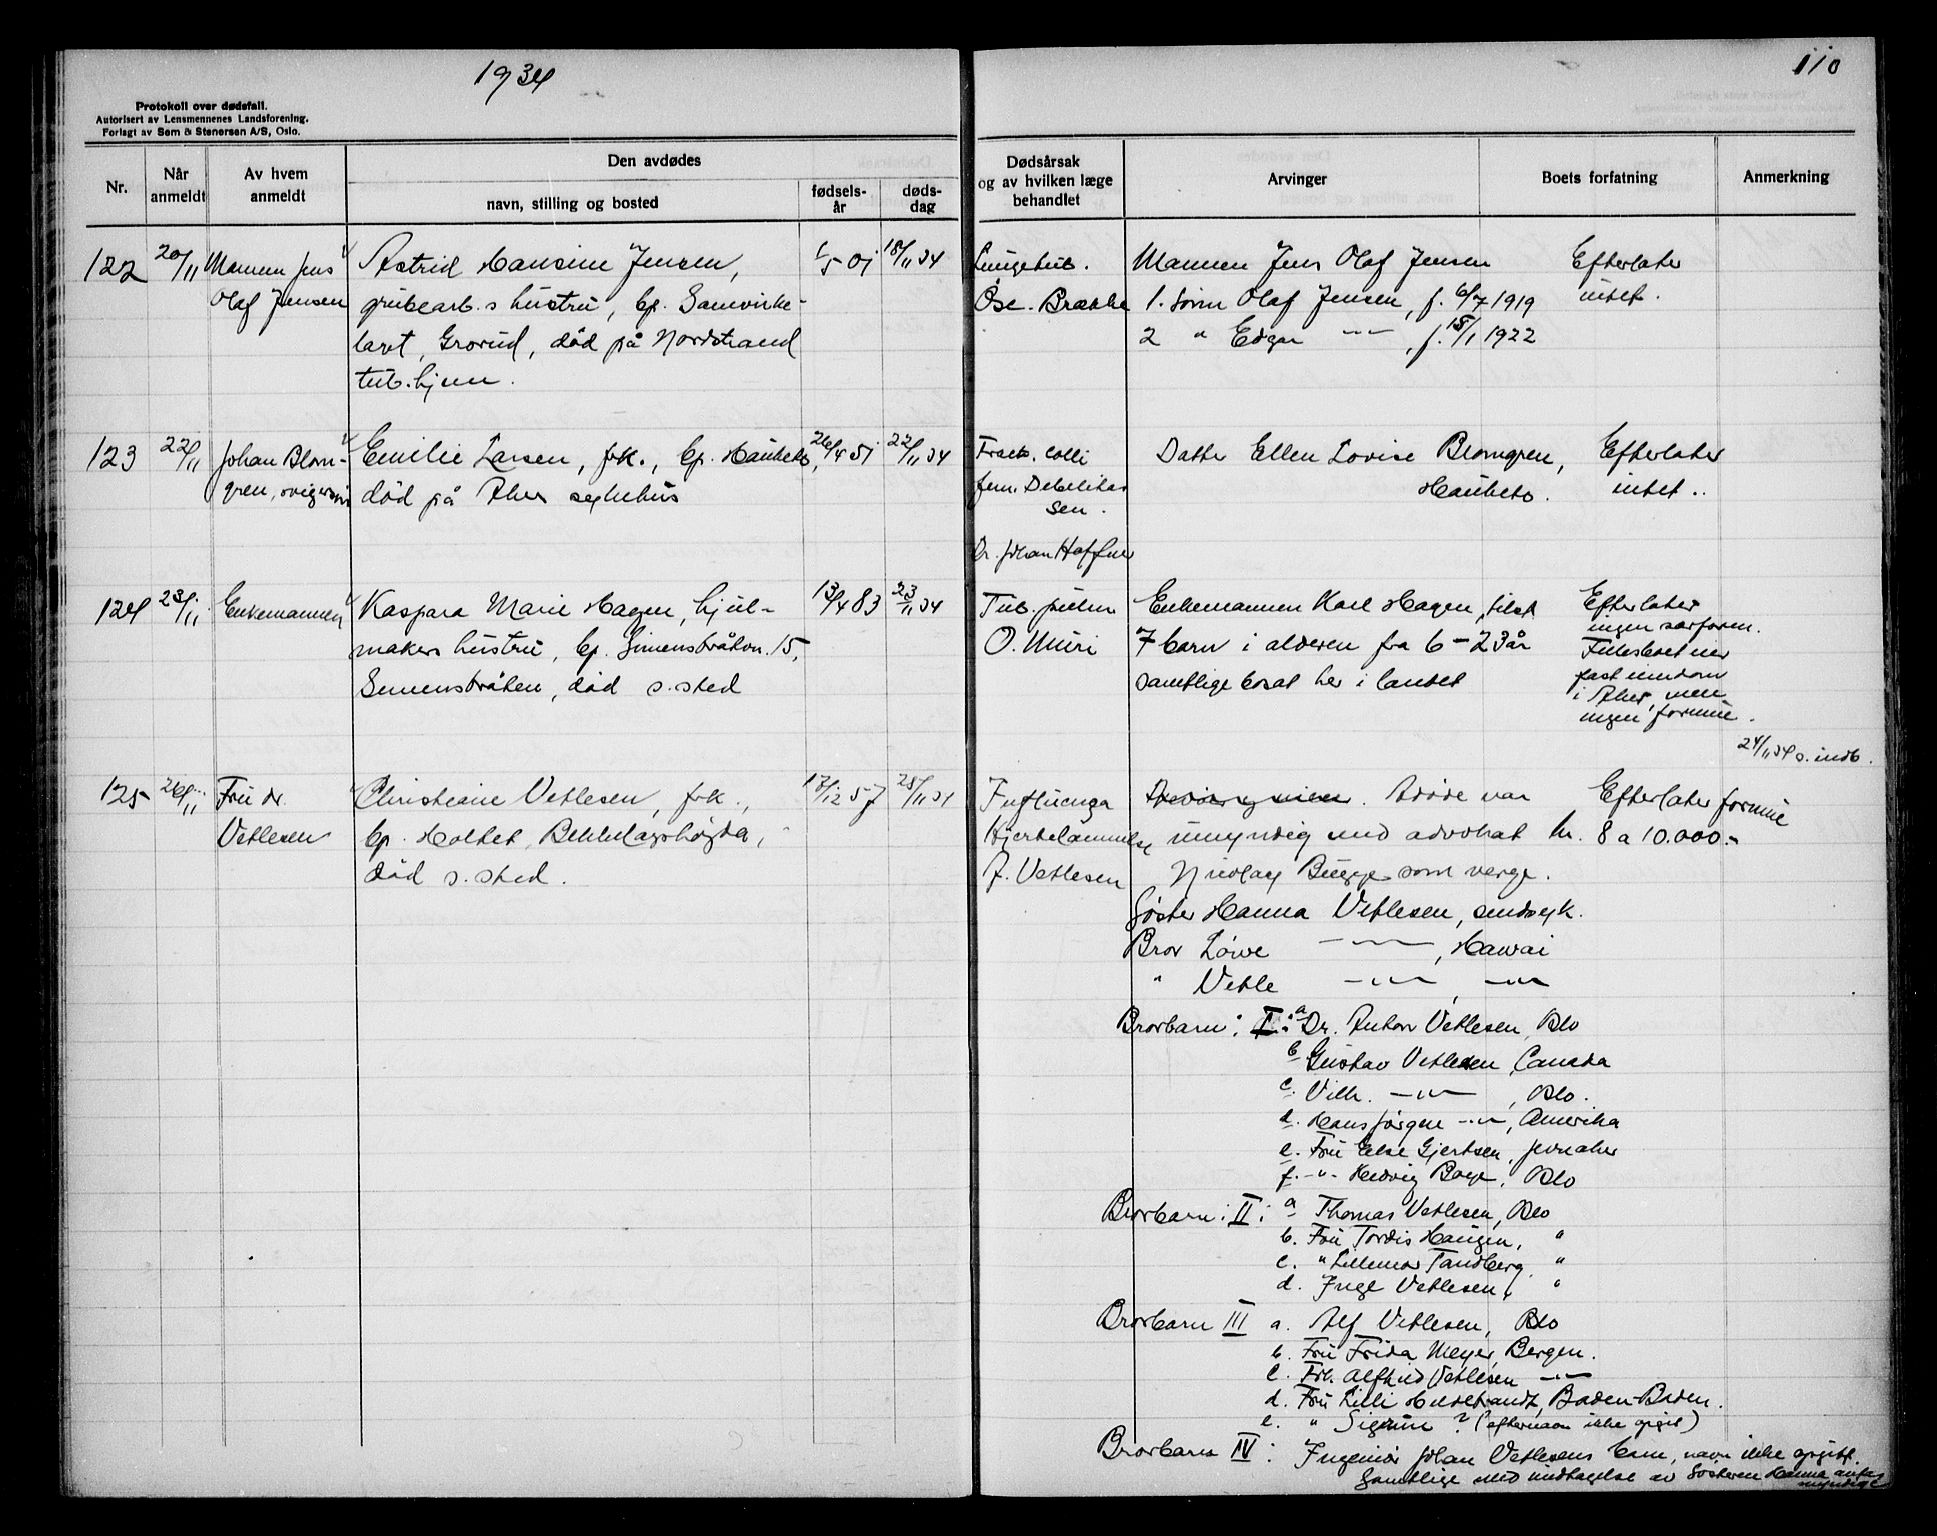 1934
110
Protokoll over dødsfall.
Autorisert av Lensmennenes Landsforening.
Forlagt av Sem & Stenersen A/S, Oslo.
Nr.
Når anmeldt
Av hvem anmeldt
Den avdødes
navn, stilling og bosted
fødsels-år
døds-dag
Dødsårsak og av hvilken læge behandlet
Arvinger
Boets forfatning
Anmerkning
122 20/11 Mannen Jens
Olaf Jensen
Astrid Hansine Jensen,
grubearb.s hustru, bp. Samvirke-
laget, Grorud, død på Nordstrand
tub.hjem.
18/11 34
Lungetub.
Øse. Brække
Mannen Jens Olaf Jensen
1. Sønn Olaf Jensen, f. 6/7 1919
2 " Edgar -"- , f. 15/1 1922
Efterlater
intet.
123 22/11 Johan Blom-
gren, svigersønn
Emilie Larsen, frk., bp. Hauketo,
død på Aker sykehus
26/4 51
22/11 34
Fract. colli
fem. Debilitas
sen.
Dr. Johan Haffner
Datter Ellen Lovise Blomgren,
Hauketo.
Efterlater
intet..
124 23/11 Enkemannen
Kaspara Marie Hagen, hjul-
makers hustru, bp. Simensbråtvn. 15,
Simensbråten, død s. sted
13/4 83
23/11 34
Tub. pulm
O. Muri
Enkemannen Karl Hagen, tilst
7 barn i alderen fra 6-23 år
samtlige bosat her i landet
Efterlater
ingen særform.
Fellesboet eier
fast eiendom
i Aker, men
ingen formue.
24/11 34 s. indb.
125 26/11 Fru dr.
Vetlesen
Christiane Vetlesen, frk.,
bp. Holtet, Bekkelagshøgda,
død s. sted.
17/12 57
25/11 34
Influenza
Hjertelammelse
J. Vetlesen
Avdøde var
umyndig med advokat
Nicolay Bugge som verge.
Efterlater formue
kr. 8 a 10.000.-
Søster Hanna Vetlesen, sindsyk.
Bror Løwe -"- , Hawai
" Vetle -"- , -"-
Brorbarn: I: a Dr. Anton Vetlesen, Oslo
b Gustav Vetlesen, Canada
c. Vilh. -"- , Oslo.
d. Hans Jørgen -"-, Amerika
e. Fru Else Gjertsen,
f. -"- Hedvig Boye, Oslo
Brorbarn: II: a Thomas Vetlesen, Oslo
b. Fru Tordis Haugen, "
c. " Lillemor Tandberg, "
d. Inge Vetlesen, "
Brorbarn III a. Alf Vetlesen, Oslo
b. Fru Frida Meyer, Bergen.
c. Frk. Alfhild Vetlesen -"-
d. Fru Lilli Hildebrandt, Baden-Baden.
e. " Sigrun ? (efternavn ikke opgit)
Brorbarn IV: Ingeniør Johan Vetlesens barn, navn ikke opgitt.
Samtlige med undtagelse av søsteren Hanna antas
myndige